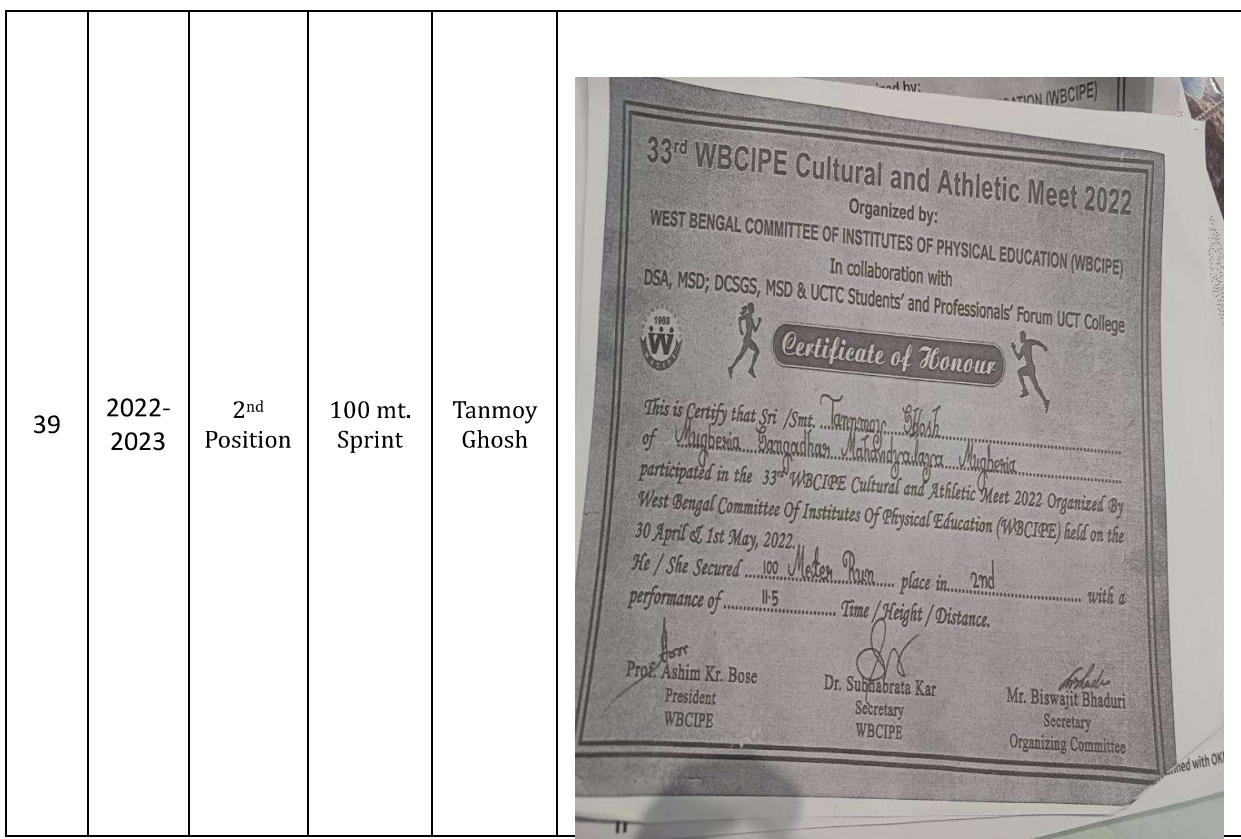 39
2022-
2023
2nd
Position
100 mt.
Sprint
Tanmoy
Ghosh
ed by:
ATION (WBCIPE)
33rd WBCIPE Cultural and Athletic Meet 2022
Organized by:
WEST BENGAL COMMITTEE OF INSTITUTES OF PHYSICAL EDUCATION (WBCIPE)
In collaboration with
DSA, MSD; DCSGS, MSD & UCTC Students' and Professionals' Forum UCT College
1988
W
WBCIPE
Certificate of Honour
This is Certify that Sri /Smt. Tanmoy Ghosh
of Mugberia Gangadhar Mahavidyalaya Mugberia
participated in the 33rd WBCIPE Cultural and Athletic Meet 2022 Organized By
West Bengal Committee Of Institutes Of Physical Education (WBCIPE) held on the
30 April & 1st May, 2022.
He / She Secured 100 Meter Run place in 2nd with a
performance of 11.5 Time / Height / Distance.
Prof. Ashim Kr. Bose
President
WBCIPE
Dr. Subhabrata Kar
Secretary
WBCIPE
Mr. Biswajit Bhaduri
Secretary
Organizing Committee
ned with OK